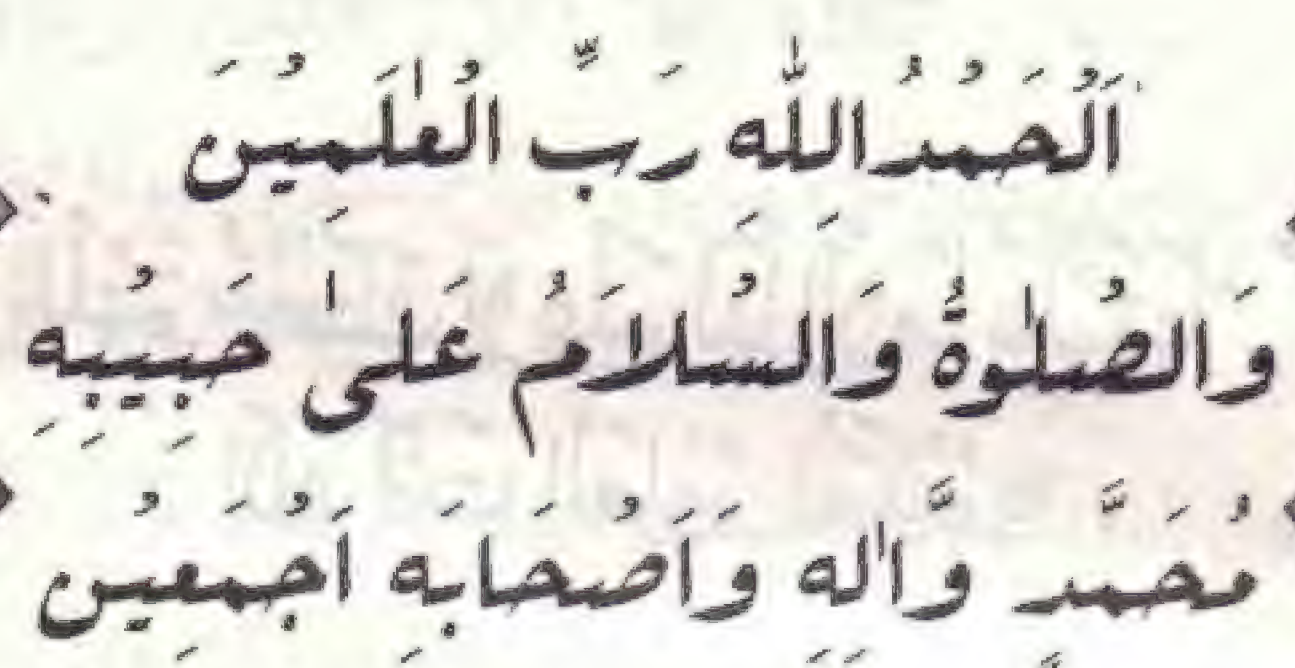 اَلْحَمْدُ اللّٰهِ رَبِّ الْعٰلَمِيْنَ
وَالصْلٰوةُ وَالسْلاَمُ عَلىٰ حَبِيْبِهِ
مُحَمَّدٍ وَّاٰلِهِ وَاَصْحَابَهِ اَجْمَعِيْنَ